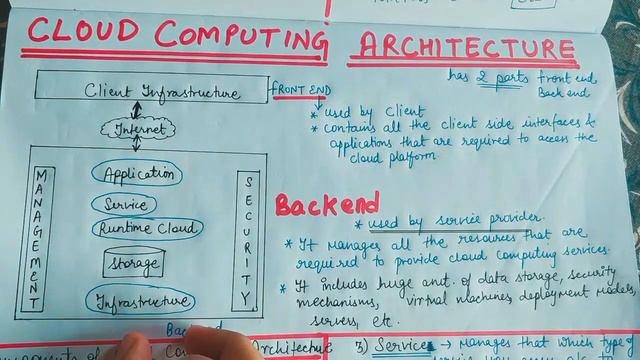 CLOUD COMPUTING ARCHITECTURE
has 2 parts front end
Back end
Client Infrastructure
FRONT END
Internet
* used by Client
* contains all the client side interfaces &
applications that are required to access the
cloud platform
MANAGEMENT
Application
Service
Runtime Cloud
Storage
Infrastructure
SECURITY
Backend
Backend
* used by service provider.
* It manages all the resources that are
required to provide cloud computing services.
* It includes huge amt. of data storage, security
mechanisms, virtual machines, deployment models,
servers, etc.
of Architecture
3) Service → Manages that which type of